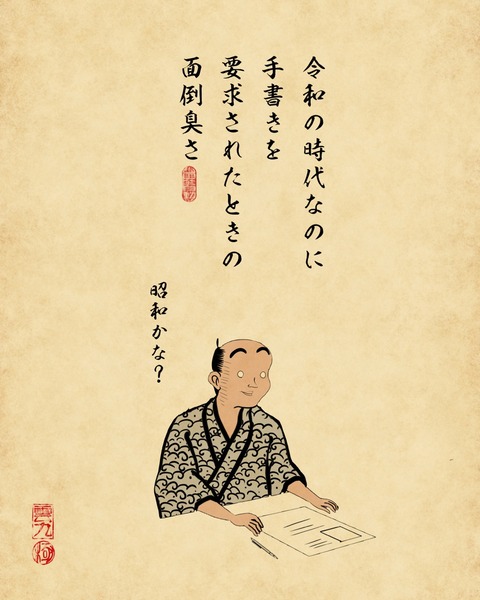 令和の時代なのに
手書きを
要求されたときの
面倒臭さ
昭和かな？